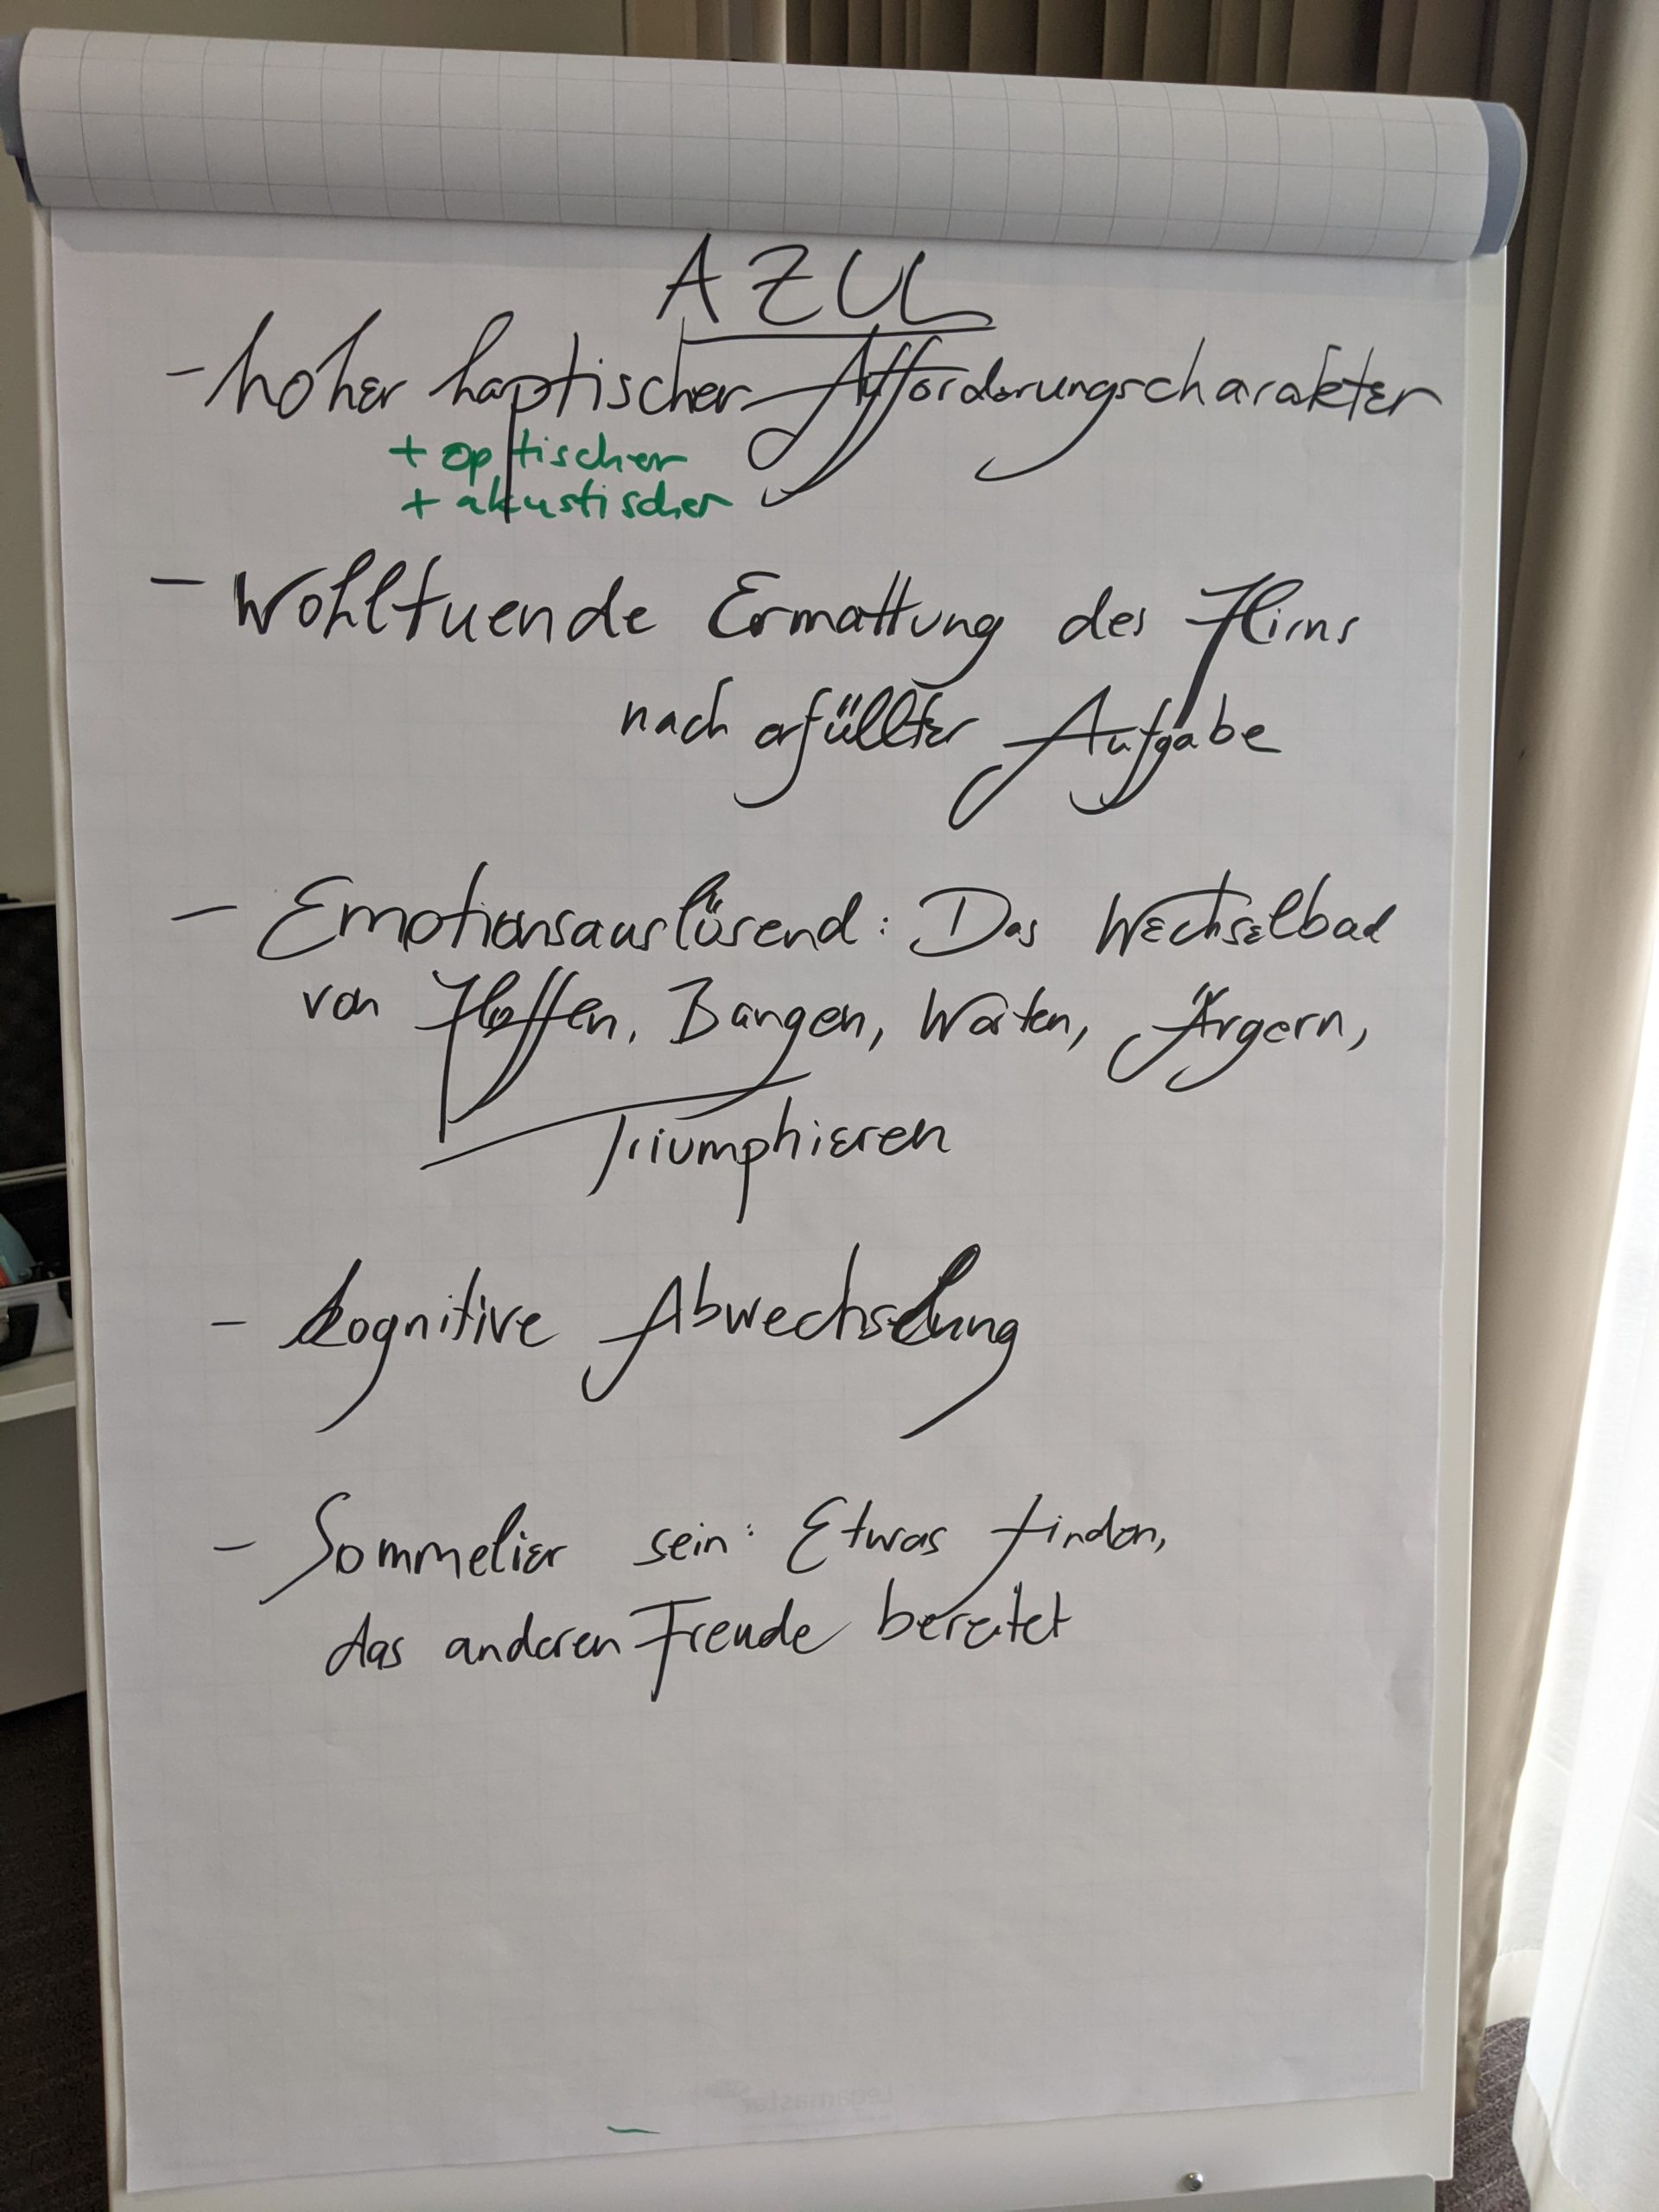 AZUL
- hoher haptischer Afforderungscharakter
+ optischer
+ akustischer
- Wohltuende Ermattung des Hirns
nach erfüllter Aufgabe
- Emotionsauslösend: Das Wechselbad
von Hoffen, Bangen, Warten, Ärgern,
Triumphieren
- kognitive Abwechslung
- Sommelier sein: Etwas finden,
das anderen Freude bereitet